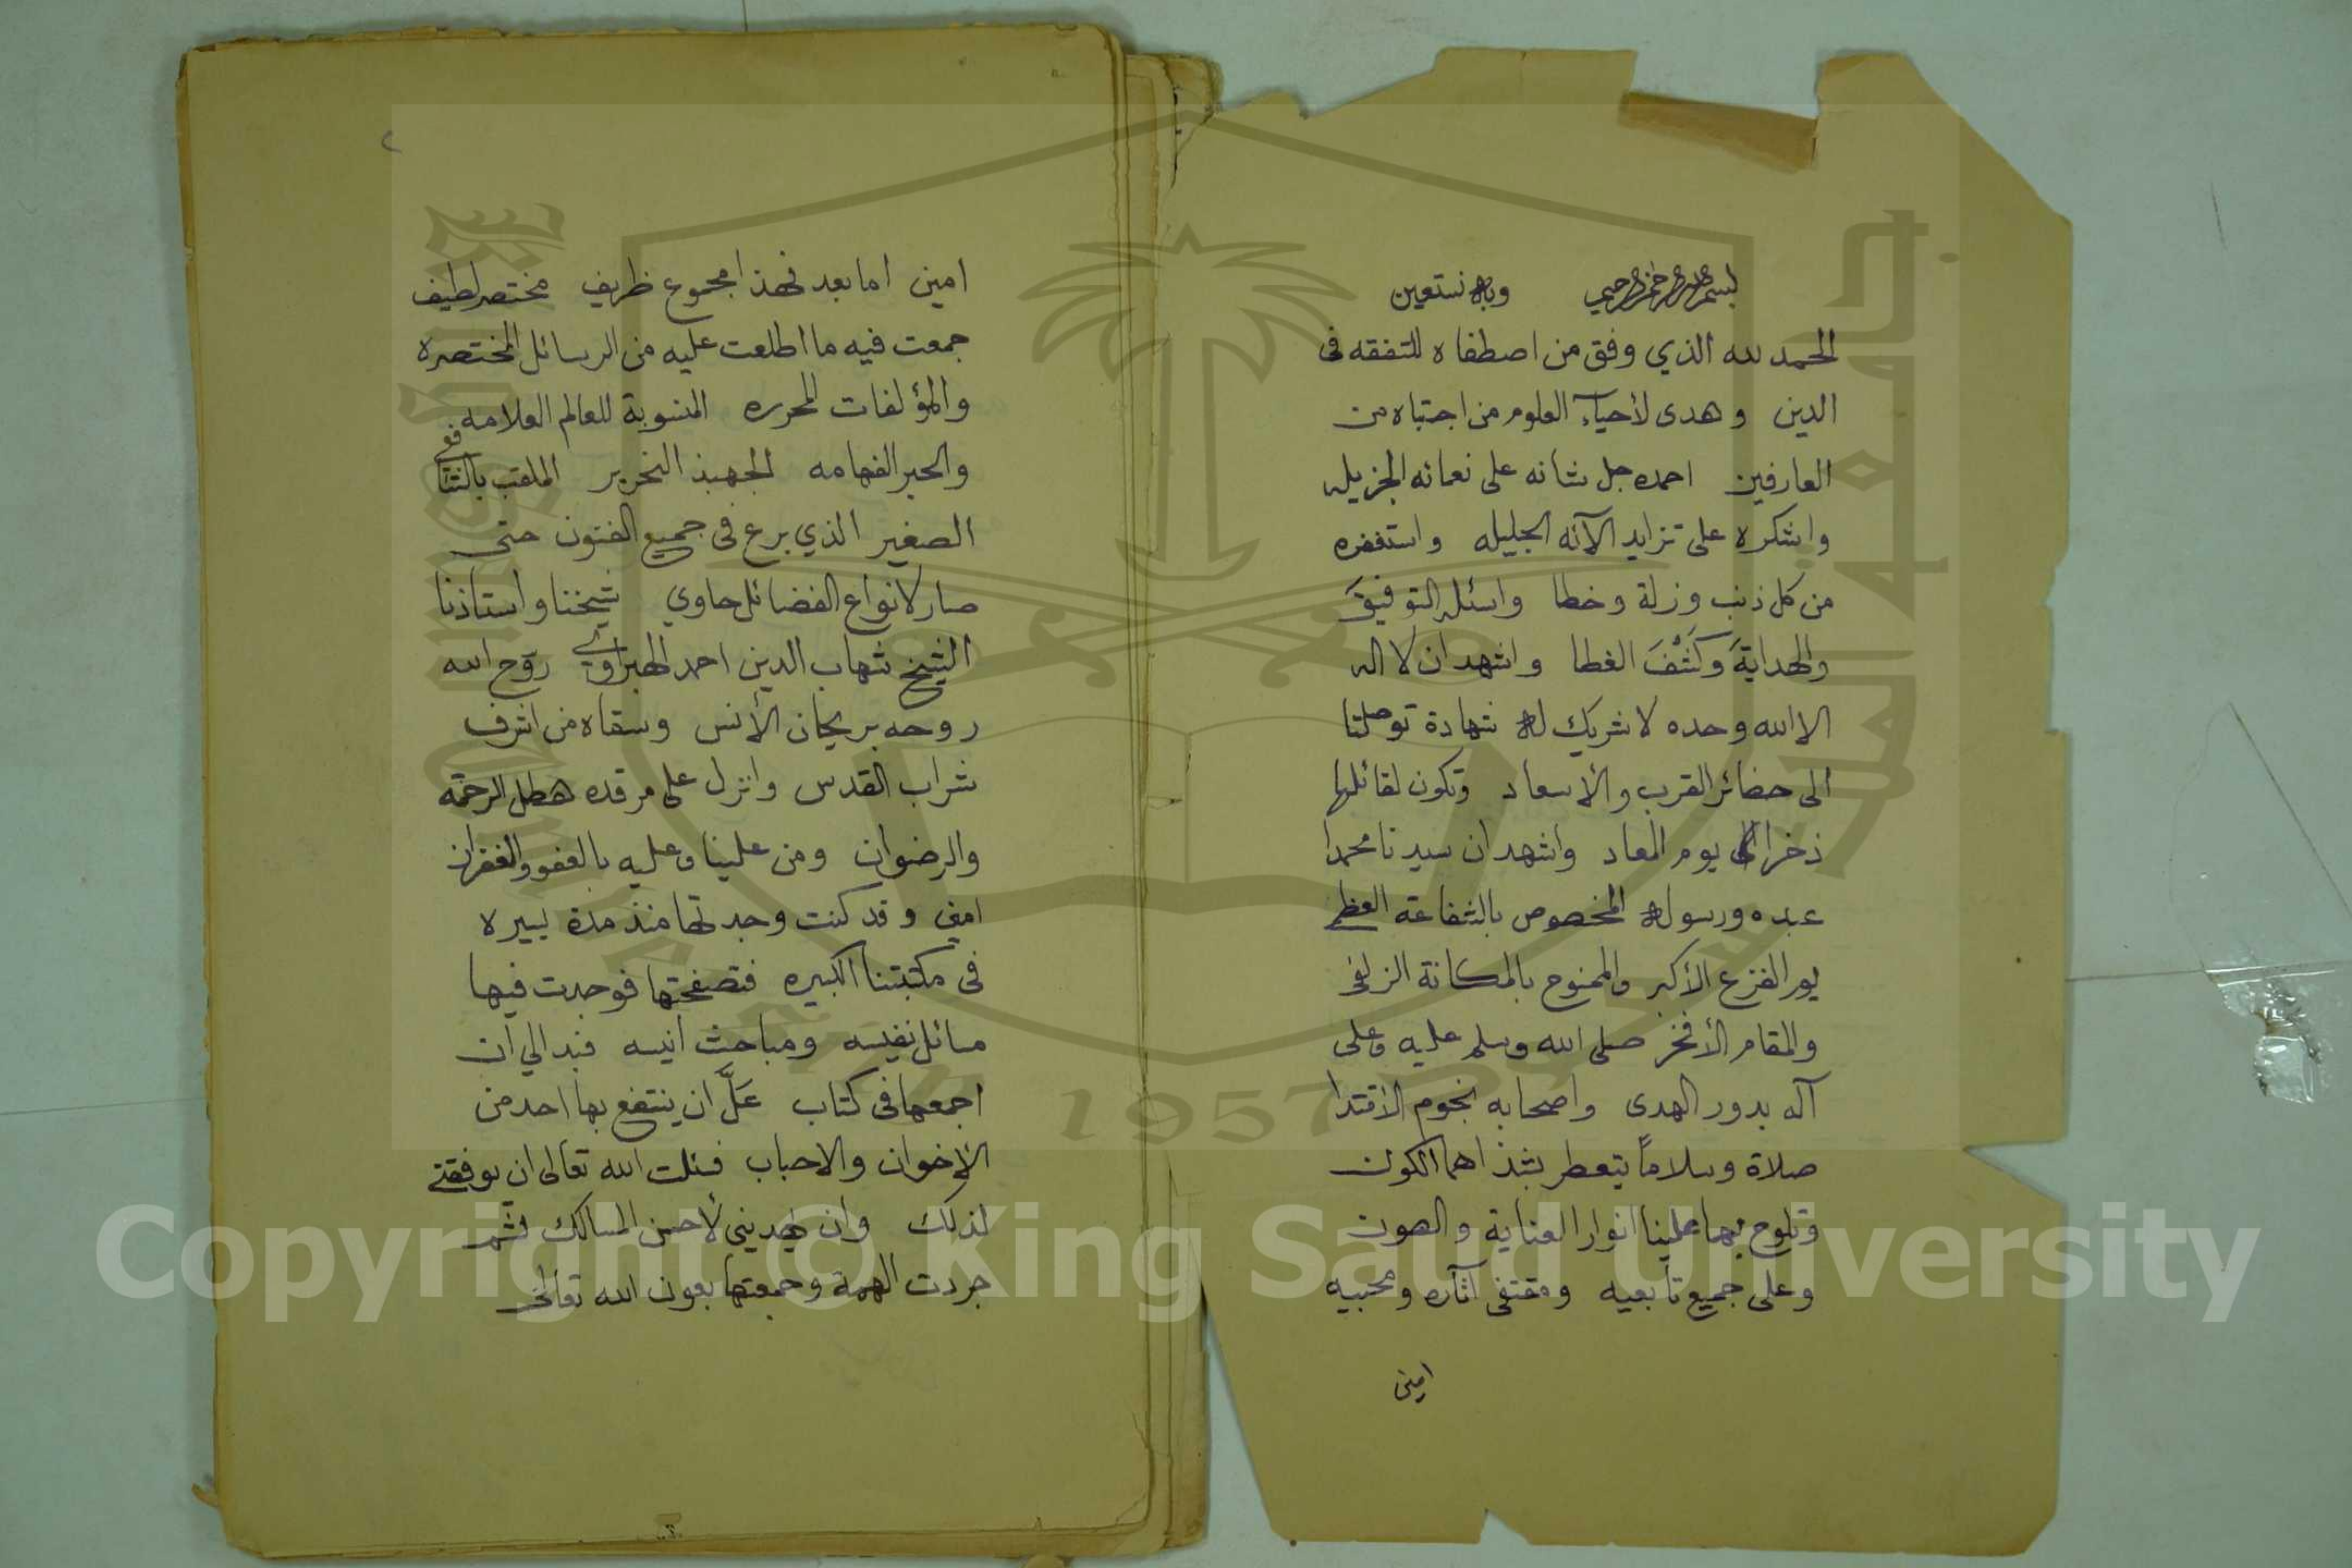 بسم الله الرحمن الرحيم وبه نستعين
الحمد لله الذي وفق من اصطفاه للتفقه فى
الدين وهدى لأحياء العلوم من اجتباه من
العارفين احمده جل شانه على نعمائه الجزيله
واشكره على تزايد الآئه الجليله واستغفره
من كل ذنب وزلة وخطا واسئله التوفيقَ
والهدايةَ وكَشْفَ الغطا واشهد ان لا اله
الا الله وحده لا شريك له شهادة توصلنا
الى حضائر القرب والأسعاد وتكون لقائلها
ذخرا الى يوم المعاد واشهد ان سيدنا محمدا
عبده ورسوله المخصوص بالشفاعة العظمى
يوم الفزع الأكبر والممنوح بالمكانة الزلفى
والمقام الأفخر صلى الله وسلم عليه وعلى
آله بدور الهدى واصحابه نجوم الأقتدا
صلاة وسلاماً يتعطر بشذاهما الكون
وتلوح بهما علينا انوار العناية والصون
وعلى جميع تابعيه ومقتفى آثاره ومحبيه
امين
٢
امين اما بعد فهذا مجموع ظريف مختصر لطيف
جمعت فيه ما اطلعت عليه من الرسائل المختصره
والمؤلفات المحرره المنسوبة للعالم العلامه
والحبر الفهامه الجهبذ النحرير الملقب بالشافعي
الصغير الذي برع فى جميع الفنون حتى
صار لانواع الفضائل حاوي شيخنا واستاذنا
الشيخ شهاب الدين احمد الهبراوي روّح الله
روحه بريحان الأنس وسقاه من اشرف
شراب القدس وانزل على مرقده هطل الرحمه
والرضوان ومن علينا وعليه بالعفو والغفران
امين وقد كنت وجدتها منذ مدة يسيره
فى مكتبتنا الكبيره فتصفحتها فوجدت فيها
مسائل نفيسه ومباحث انيسه فبدا لي ان
اجمعها فى كتاب عَلَّ ان ينتفع بها احد من
الأخوان والاحباب فسئلت الله تعالى ان يوفقني
لذلك وان يهديني لأحسن المسالك فشمر
جردت الهمة وجمعتها بعون الله تعالى
1957
Copyright © King Saud University